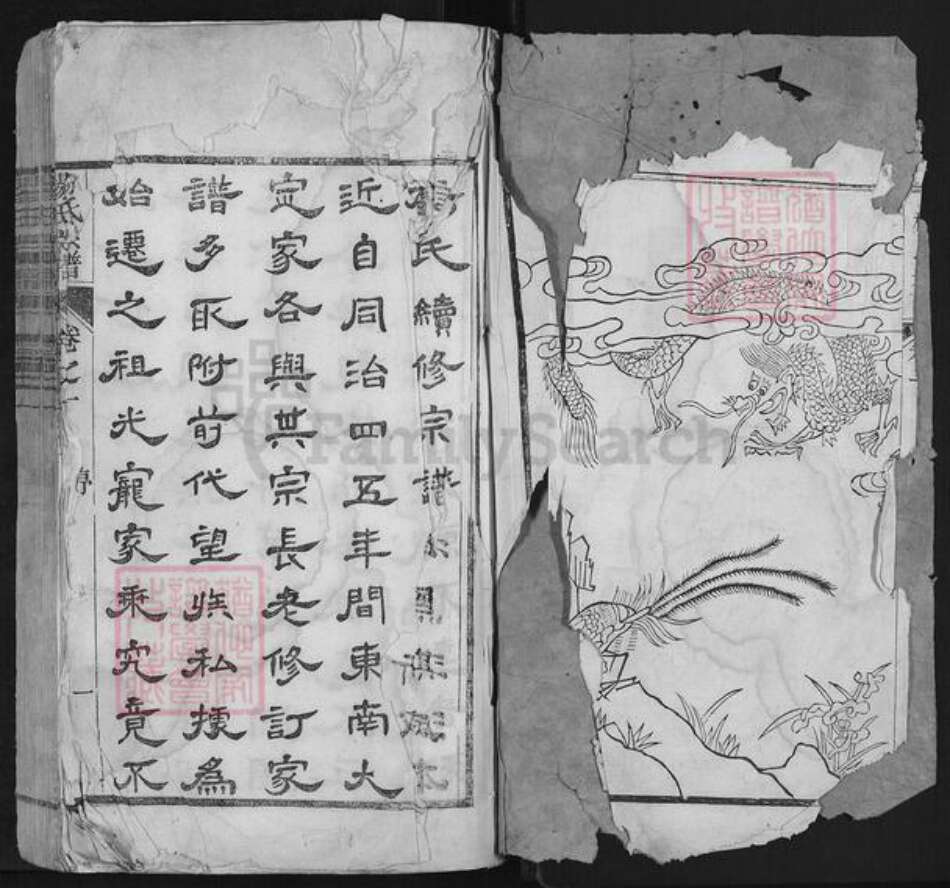 氏續修宗譜
近自同治四五年間東南大
定家各與其宗長老修訂家
譜多取附前代望族私據為
始遷之祖光寵家乘究竟不
氏宗譜 卷之一 序 一
FamilySearch